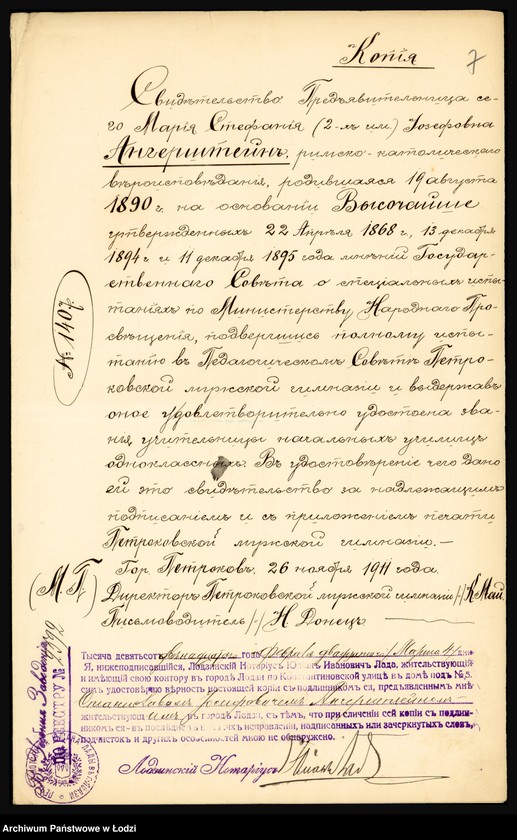 Копія
7
Свидѣтельство Предъявительница се-
го Марія Стефанія (2-хъ им.) Іозефовна
Ангерштейнъ, римско-католическаго
вѣроисповѣданія, родившаяся 19 августа
1890 г. на основаніи Высочайше
утвержденныхъ 22 Апрѣля 1868 г., 13 декабря
1894 г и 11 декабря 1895 года мнѣній Государ-
ственнаго Совѣта о спеціальныхъ испы-
таніяхъ по Министерству Народнаго Про-
свѣщенія, подвергшись полному испы-
танію въ Педагогическомъ Совѣтѣ Петро-
ковской мужской гимназіи и выдержавъ
оное удовлетворительно удостоена зва-
нія учительницы начальныхъ училищъ
одноклассныхъ. Въ удостовѣреніе чего дано
ей это свидѣтельство за надлежащимъ
подписаніемъ и съ приложеніемъ печати
Петроковской мужской гимназіи. —
Гор. Петроковъ, 26 ноября 1911 года.
(М.П.) Директоръ Петроковской мужской гимназіи /-/ К Май
Письмоводитель /-/ Н Донецъ
№ 1407
Тысяча девятьсотъ двѣнадцатаго года Февраля двадцатаго / Марта
Я, нижеподписавшійся, Лодзинскій Нотаріусъ Ивановичъ Лада, жительствующій
и имѣющій свою контору въ городѣ Лодзи по Константиновской улицѣ въ домѣ подъ № 5,
симъ удостовѣряю вѣрность настоящей копіи съ подлинникомъ ея, предъявленнымъ мнѣ
Станиславомъ Іосифовичемъ Ангерштейномъ
жительствующимъ въ городѣ Лодзи, съ тѣмъ, что при сличеніи сей копіи съ подлин-
никомъ ея въ послѣднемъ исправленій, надписанныхъ или зачеркнутыхъ словъ,
подчистокъ и другихъ особенностей мною не обнаружено.
Лодзинскій Нотаріусъ
ПО РЕЕСТРУ №
Archiwum Państwowe w Łodzi